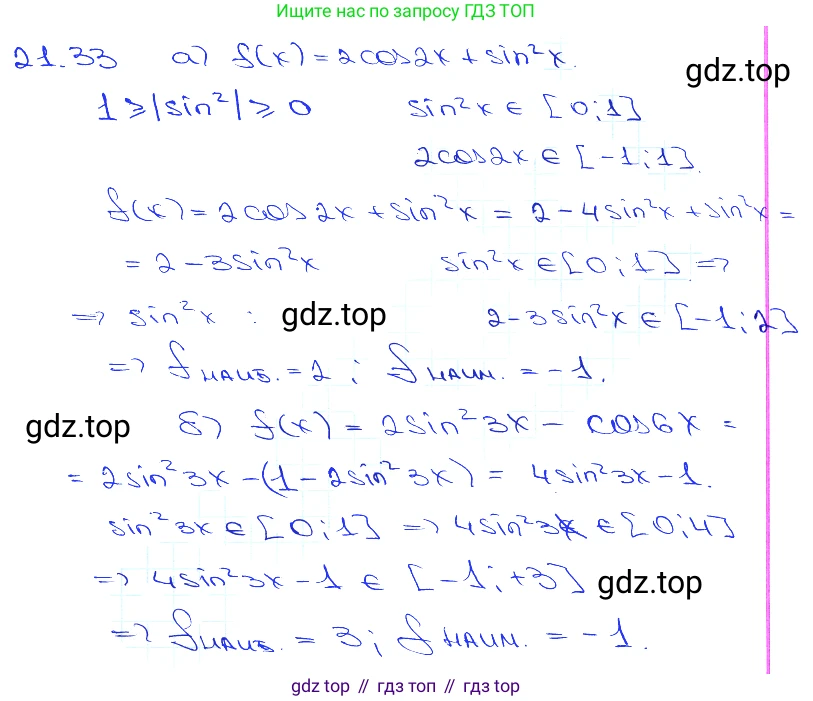 Ищите нас по запросу ГДЗ ТОП
21.33 а) f(x) = 2cos2x + sin²x.
gdz.top
1 ≥ |sin²| ≥ 0 sin²x ∈ [0; 1]
2cos2x ∈ [-1; 1].
f(x) = 2cos2x + sin²x = 2 - 4sin²x + sin²x =
= 2 - 3sin²x sin²x ∈ [0; 1] =>
=> sin²x : gdz.top 2 - 3sin²x ∈ [-1; 2]
=> f наиб. = 2; f наим. = -1.
gdz.top б) f(x) = 2sin²3x - cos6x =
= 2sin²3x - (1 - 2sin²3x) = 4sin²3x - 1.
sin²3x ∈ [0; 1] => 4sin²3x ∈ [0; 4]
=> 4sin²3x - 1 ∈ [-1; +3] gdz.top
=> f наиб. = 3; f наим. = -1.
gdz top // гдз топ // gdz top